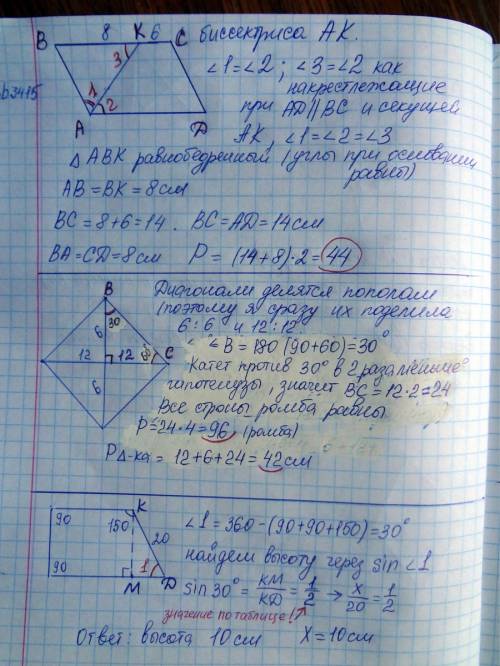 B 8 K 6 C биссектриса AK.
∠1=∠2 ; ∠3=∠2 как
3 накрестлежащие
1 2 при AD||BC и секущей
A D AK, ∠1=∠2=∠3
△ ABK равнобедренный (углы при основании
равны)
AB = BK = 8см
BC = 8+6 = 14 . BC=AD=14см
BA=CD=8см P = (14+8)·2=44
Диагонали делятся пополам
B (поэтому я сразу их поделила
6 30 6:6 и 12:12
∠B = 180 (90+60)=30°
12 12 60 C Катет против 30° в 2 раза меньше
гипотенузы, значит BC=12·2=24
6 Все строны ромба равны
P=24·4=96 (ромба)
P△-ка = 12+6+24=42см
K
90 150 20 ∠1 = 360-(90+90+150)=30°
найдем высоту через sin∠1
90 1 sin 30° = KM/KD = 1/2 → x/20 = 1/2
M D
значение по таблице!
Ответ: высота 10см X=10см